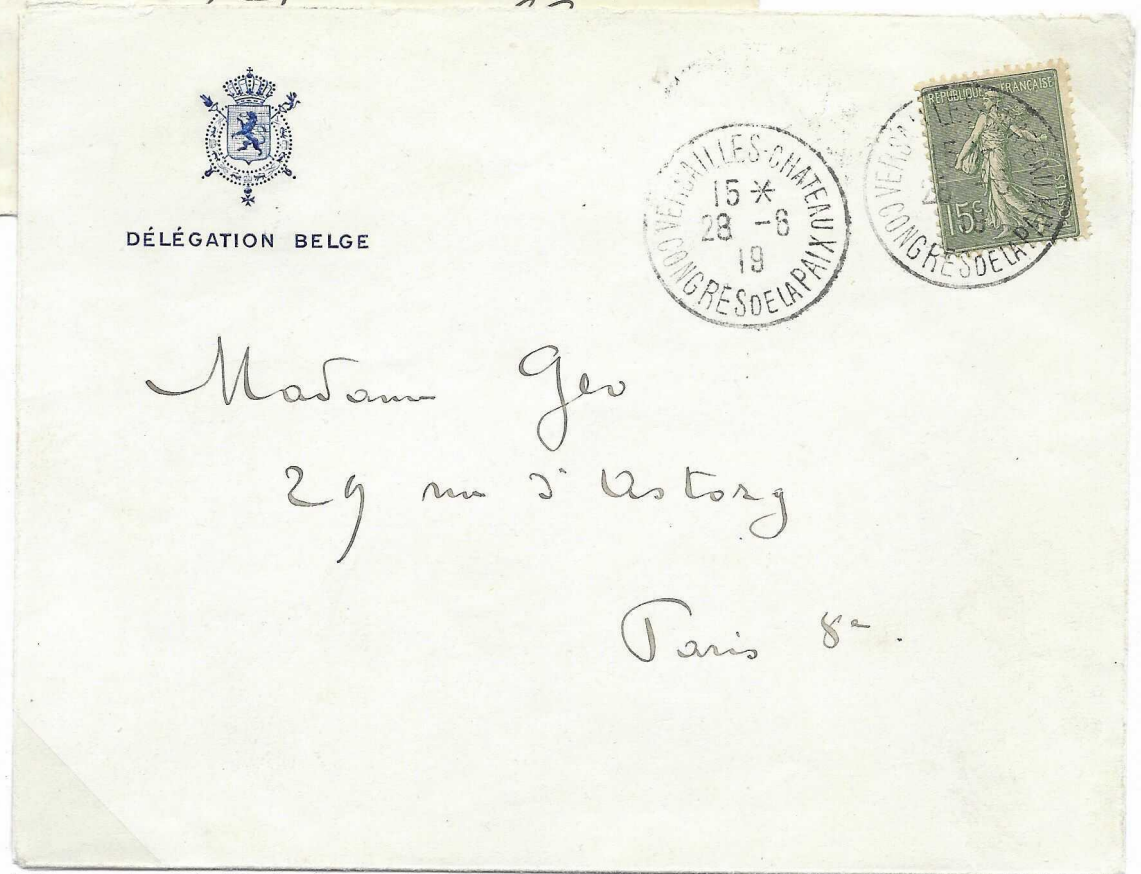 DÉLÉGATION BELGE
VERSAILLES-CHATEAU
15 *
28 -6
19
CONGRES DE LA PAIX
RÉPUBLIQUE FRANÇAISE
15c
POSTES
CONGRES DE LA PAIX
Madame Geo
29 rue d'Astorg
Paris 8e.